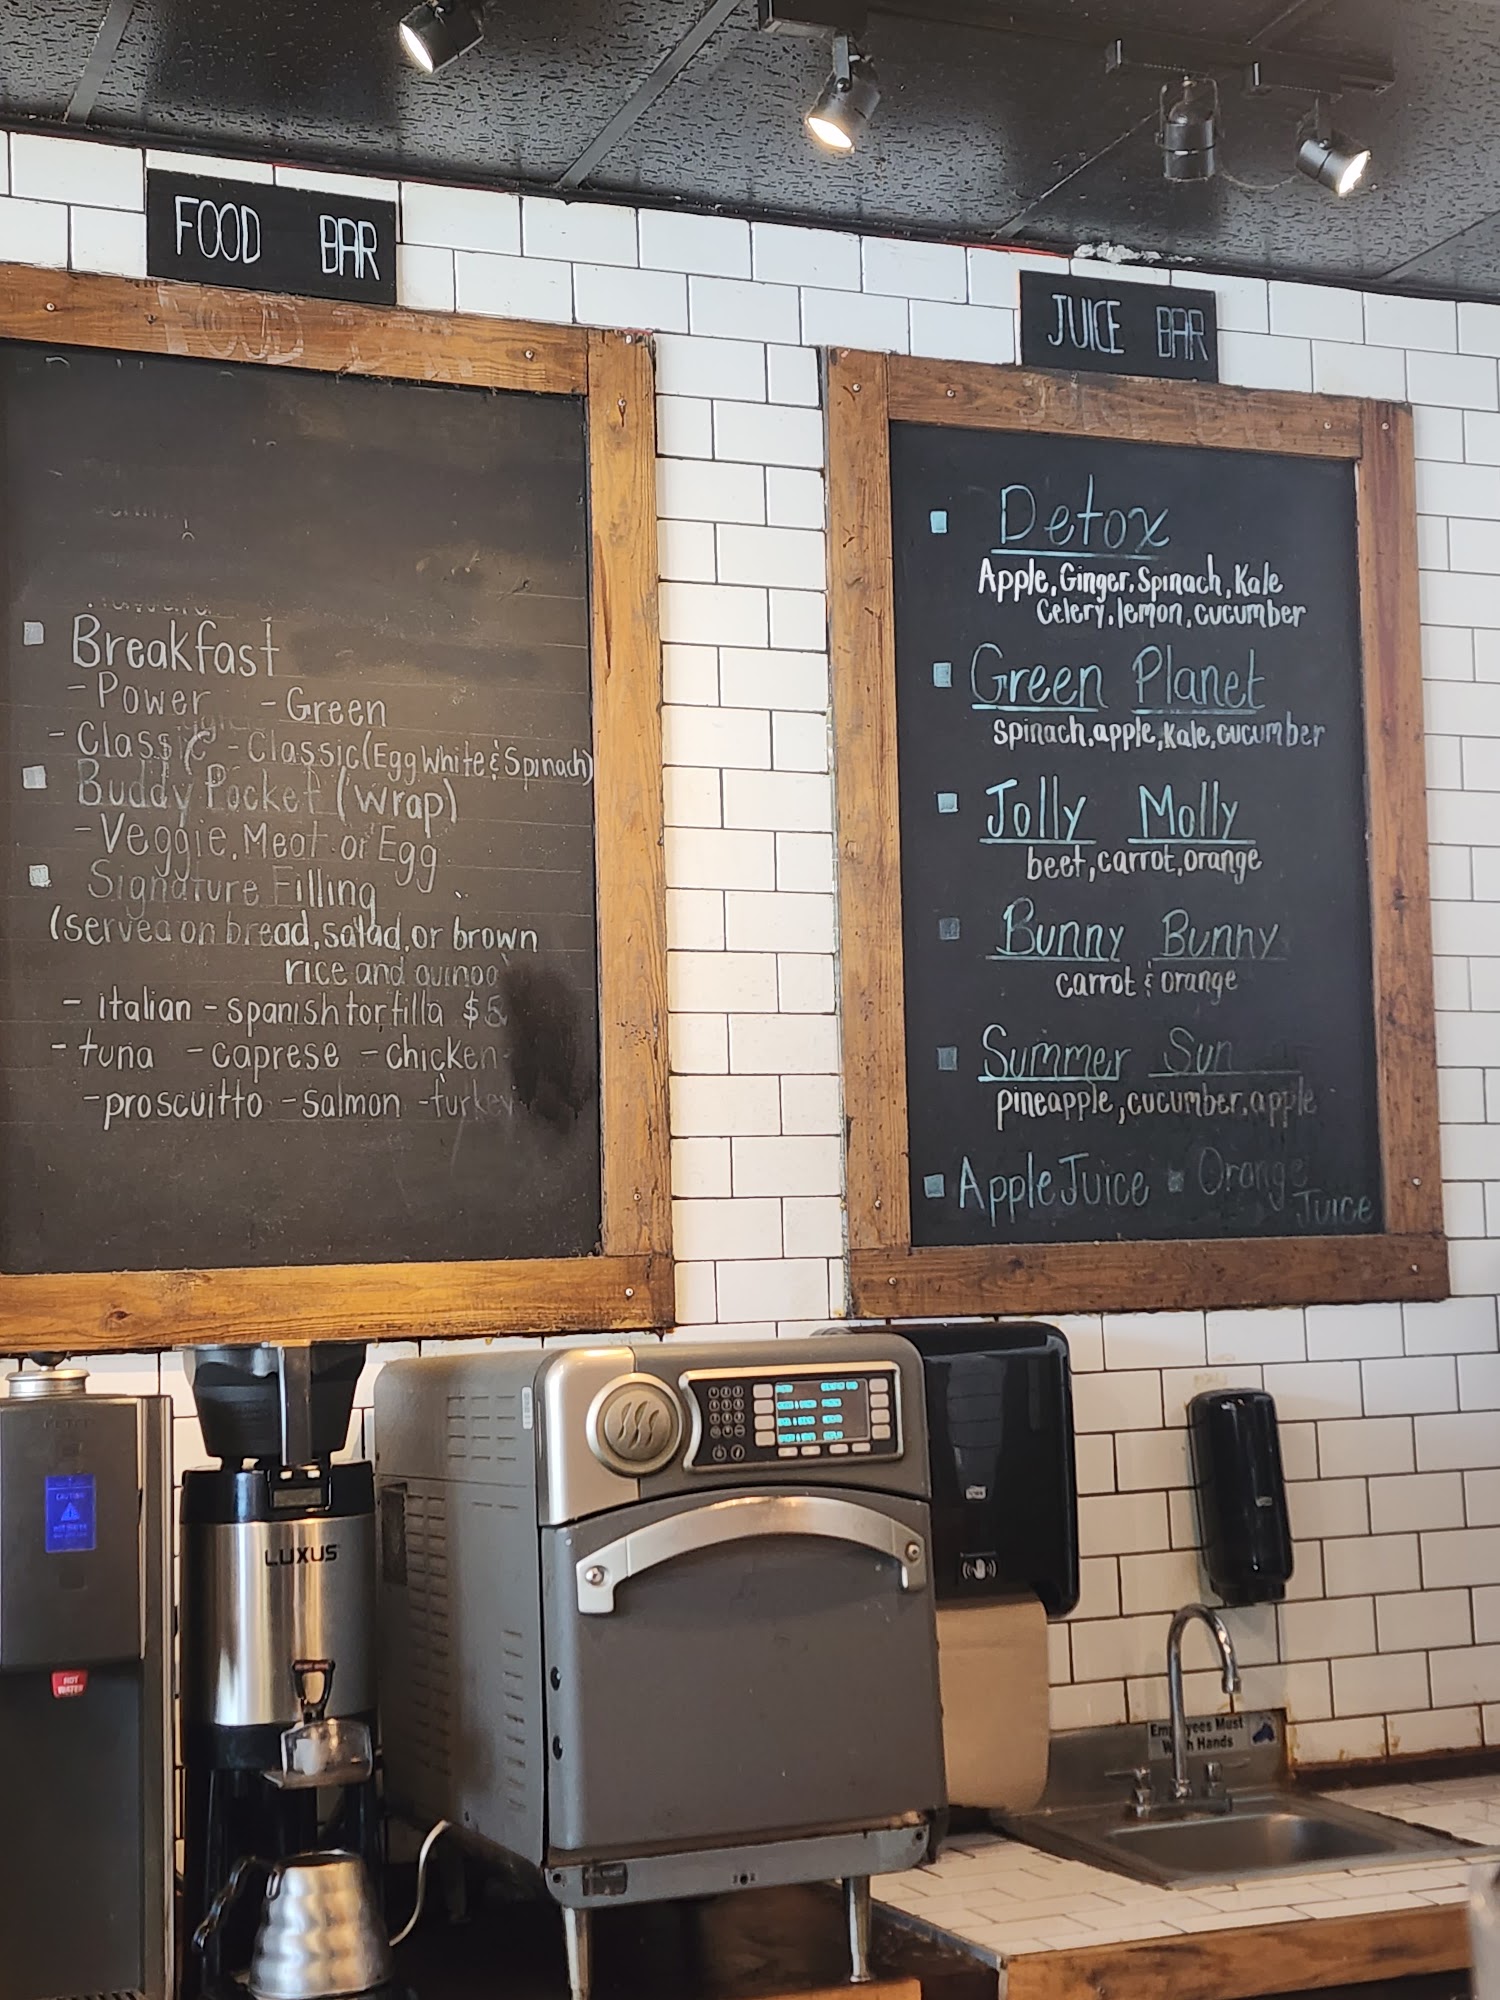 FOOD BAR
Breakfast
- Power - Green
- Classic - Classic (Egg White & Spinach)
Buddy Pocket (wrap)
- Veggie, Meat or Egg
Signature Filling
(served on bread, salad, or brown
rice and quinoa
- italian - spanish tortilla $5
- tuna - caprese - chicken
- proscuitto - salmon - turkey
JUICE BAR
Detox
Apple, Ginger, Spinach, Kale
Celery, lemon, cucumber
Green Planet
Spinach, apple, Kale, cucumber
Jolly Molly
beet, carrot, orange
Bunny Bunny
carrot & orange
Summer Sun
pineapple, cucumber, apple
Apple Juice Orange
Juice
LUXUS
CAUTION
HOT WATER
HOT
WATER
Employees Must
Wash Hands